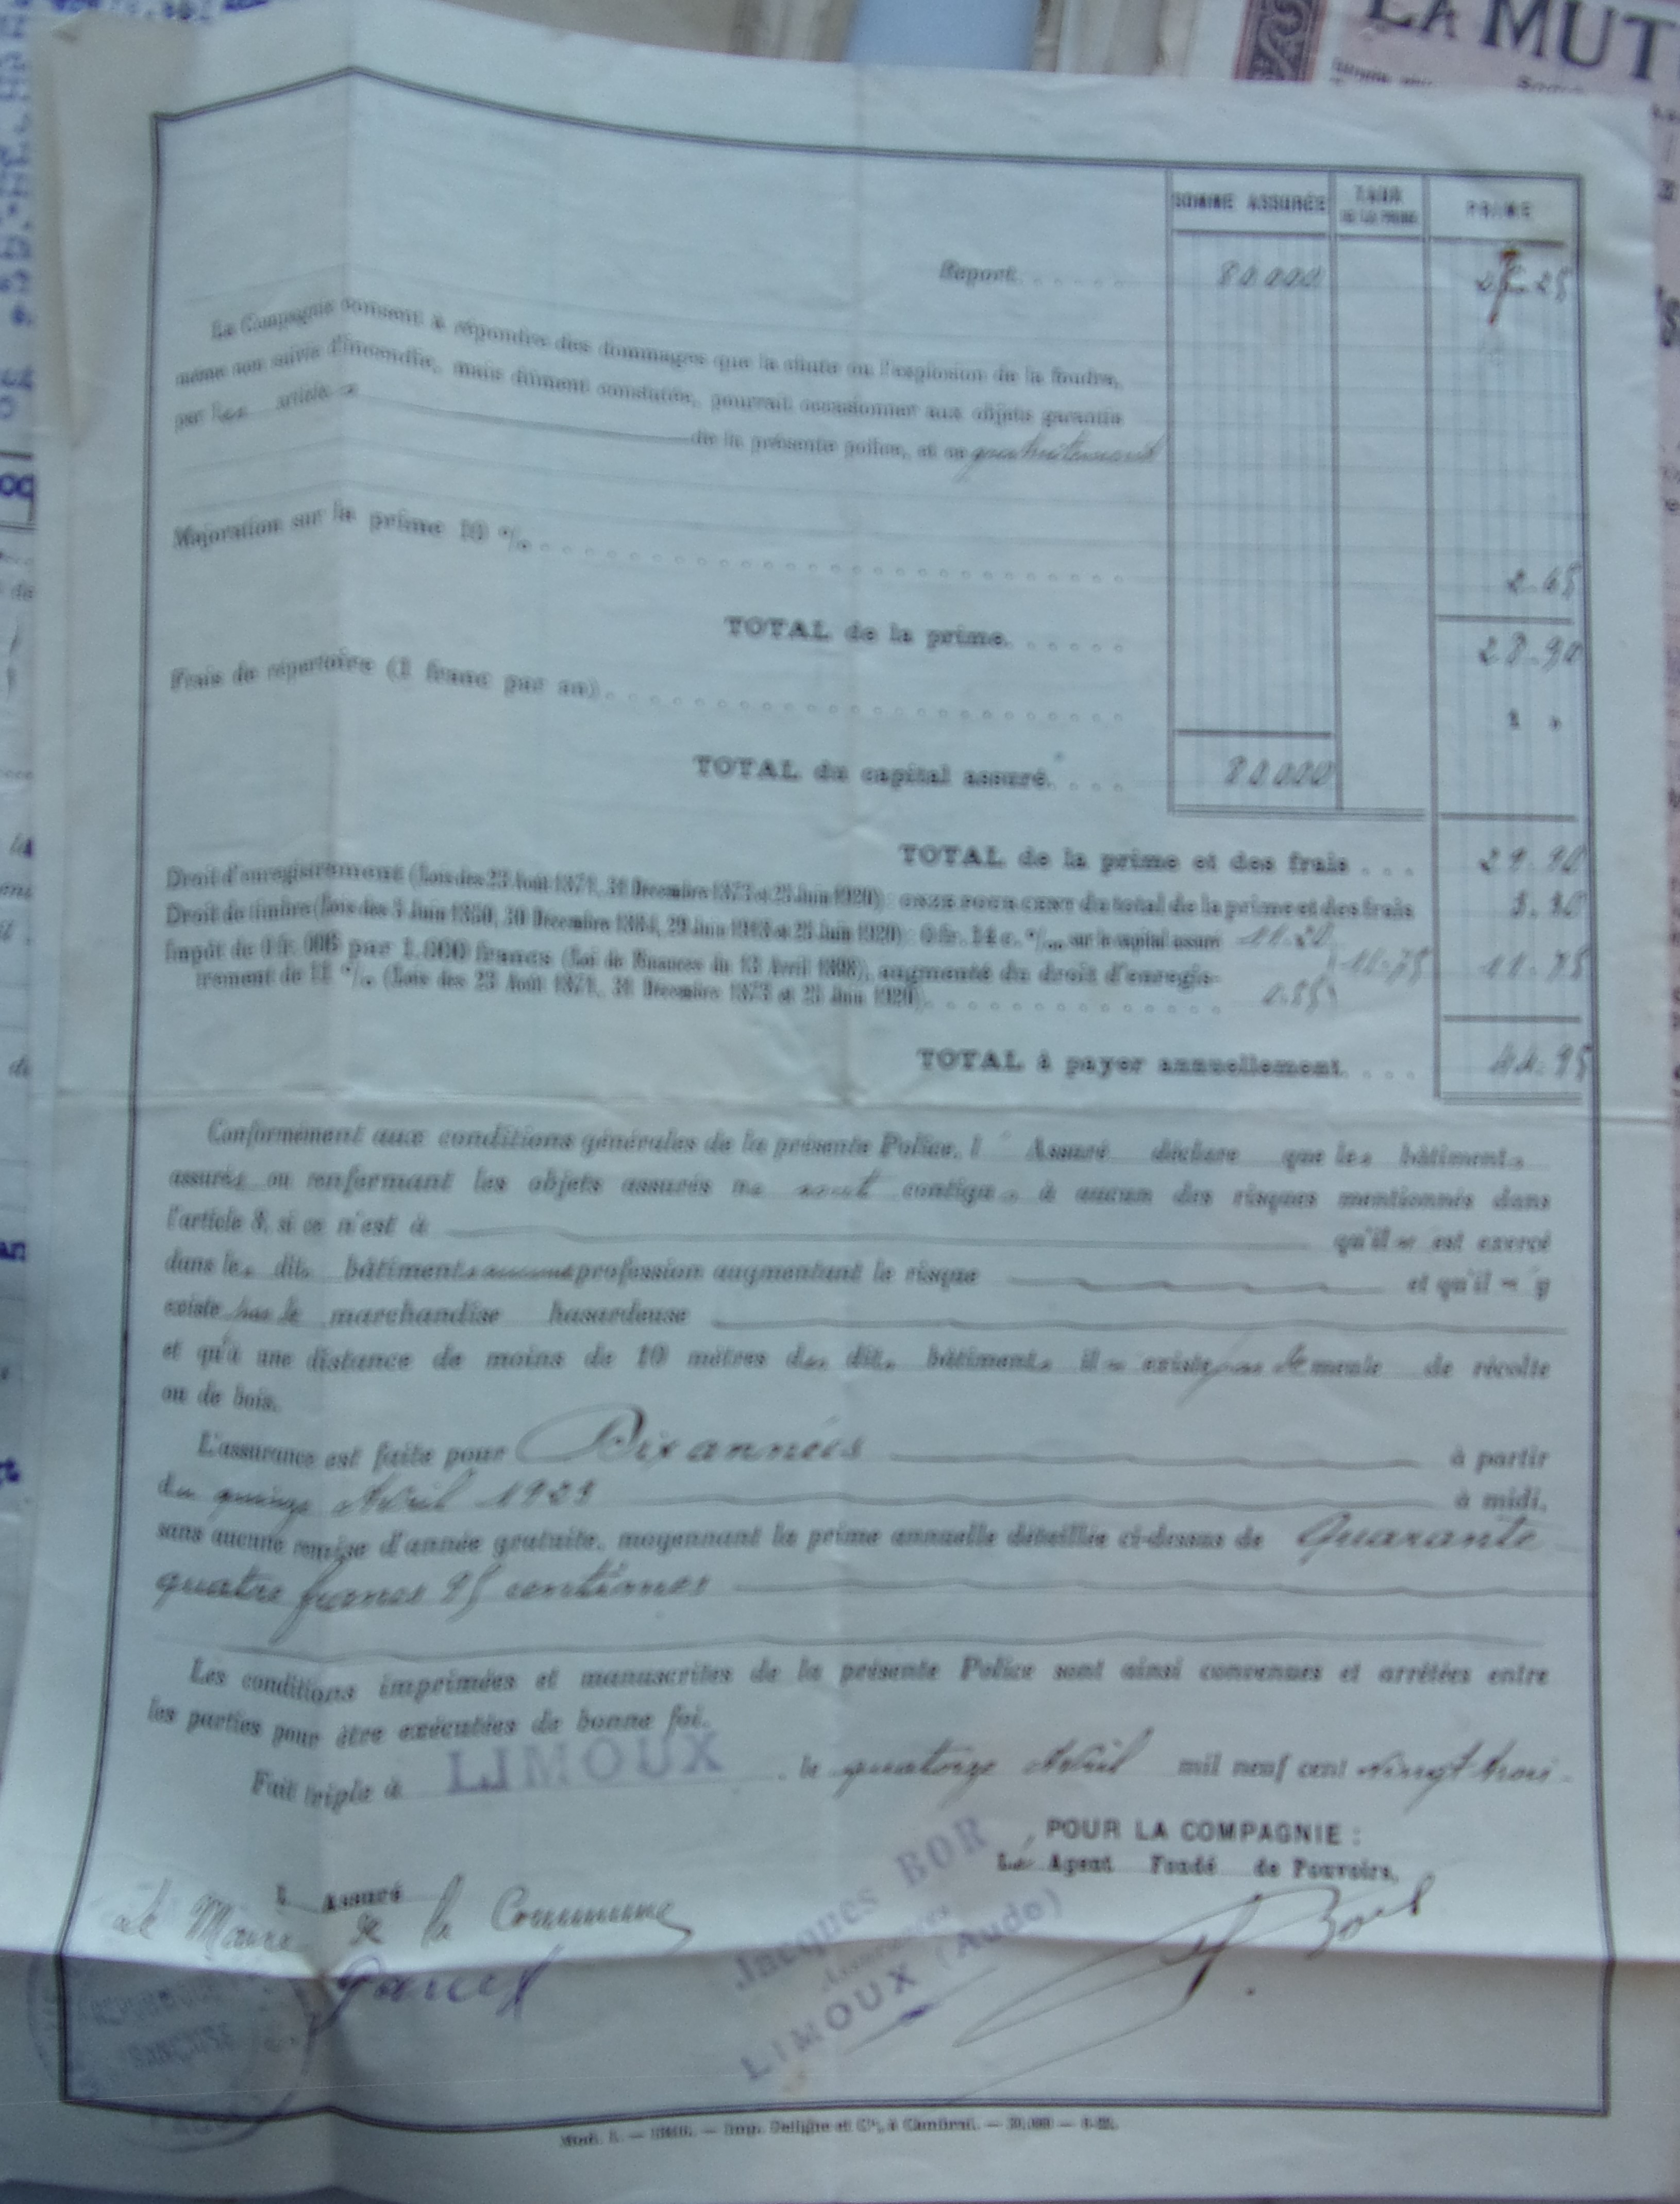 LA MUT
SOMME ASSURÉE TAUX DE LA PRIME PRIME
Report 80.000 26.25
La Compagnie consent à répondre des dommages que la chute ou l'explosion de la foudre,
même non suivie d'incendie, mais dûment constatée, pourrait occasionner aux objets garantis
par les article s
de la présente police, et ce gratuitement
Majoration sur la prime 10 %
2.65
TOTAL de la prime 28.90
Frais de répertoire (1 franc par an) 1 »
TOTAL du capital assuré 80.000
TOTAL de la prime et des frais 29.90
Droit d'enregistrement (Lois des 23 Août 1871, 31 Décembre 1873 et 25 Juin 1920) ONZE POUR CENT du total de la prime et des frais 3.30
Droit de timbre (Lois des 5 Juin 1850, 30 Décembre 1884, 29 Juin 1918 et 25 Juin 1920) 0 fr. 14 c. ‰ sur le capital assuré 11.20
Impôt de 0 fr. 006 par 1.000 francs (Loi de Finances du 13 Avril 1898), augmenté du droit d'enregis- 11.75 11.75
trement de 11 % (Lois des 23 Août 1871, 31 Décembre 1873 et 25 Juin 1920) 0.55
TOTAL à payer annuellement 44.95
Conformément aux conditions générales de la présente Police, l' Assuré déclare que les bâtiments
assurés ou renfermant les objets assurés ne sont contigus à aucun des risques mentionnés dans
l'article 8, si ce n'est à qu'il n'est exercé
dans les dits bâtiments aucune profession augmentant le risque et qu'il n'y
existe pas de marchandise hasardeuse
et qu'à une distance de moins de 10 mètres des dits bâtiments il n'existe pas de meule de récolte
ou de bois.
L'assurance est faite pour Dix années à partir
du quinze Avril 1923 à midi,
sans aucune remise d'année gratuite, moyennant la prime annuelle détaillée ci-dessus de Quarante
quatre francs 95 centimes
Les conditions imprimées et manuscrites de la présente Police sont ainsi convenues et arrêtées entre
les parties pour être exécutées de bonne foi.
Fait triple à LIMOUX, le quatorze Avril mil neuf cent vingt trois
POUR LA COMPAGNIE :
L' Agent Fondé de Pouvoirs,
L' Assuré
Le Maire de la Commune
Jacques BOR
Assurances
LIMOUX (Aude)
RÉPUBLIQUE
FRANÇAISE
Imp. Deligne et Cie, à Cambrai.